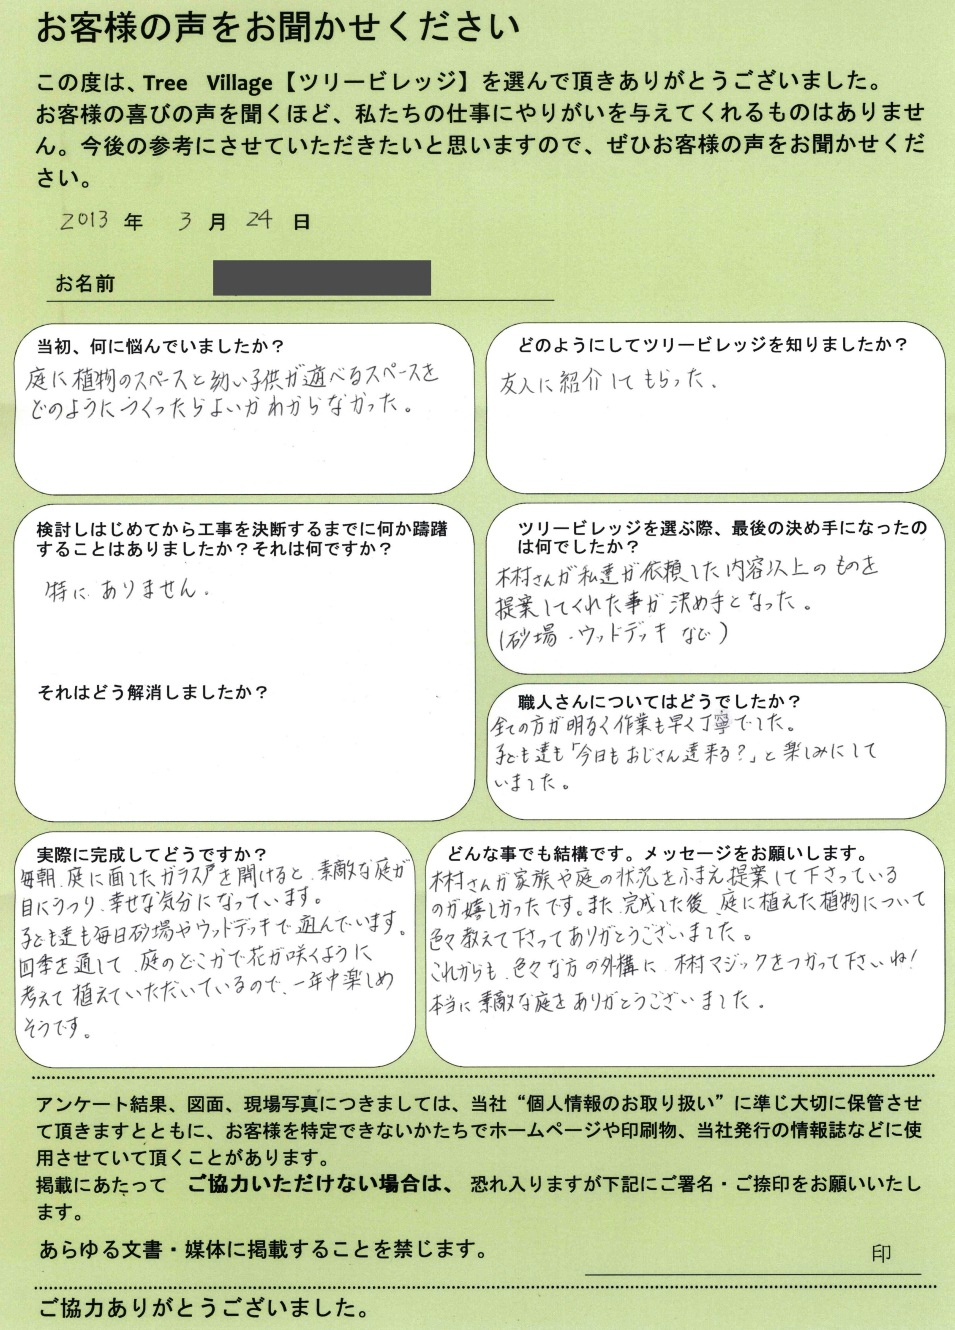 お客様の声をお聞かせください
この度は、Tree Village【ツリービレッジ】を選んで頂きありがとうございました。
お客様の喜びの声を聞くほど、私たちの仕事にやりがいを与えてくれるものはありませ
ん。今後の参考にさせていただきたいと思いますので、ぜひお客様の声をお聞かせくだ
さい。
2013 年 3 月 24 日
お名前
当初、何に悩んでいましたか？
庭に植物のスペースと幼い子供が遊べるスペースを
どのようにつくったらよいかわからなかった。
どのようにしてツリービレッジを知りましたか？
友人に紹介してもらった、
検討しはじめてから工事を決断するまでに何か躊躇
することはありましたか？それは何ですか？
特にありません.
それはどう解消しましたか？
ツリービレッジを選ぶ際、最後の決め手になったの
は何でしたか？
木村さんが私達が依頼した内容以上のものを
提案してくれた事が決め手となった。
(砂場・ウッドデッキなど)
職人さんについてはどうでしたか？
全ての方が明るく作業も早く丁寧でした。
子ども達も「今日もおじさん達来る？」と楽しみにして
いました。
実際に完成してどうですか？
毎朝、庭に面したガラス戸を開けると、素敵な庭が
目にうつり、幸せな気分になっています。
子ども達も毎日砂場やウッドデッキで遊んでいます。
四季を通して、庭のどこかで花が咲くように
考えて植えていただいているので、一年中楽しめ
そうです。
どんな事でも結構です。メッセージをお願いします。
木村さんが家族や庭の状況をふまえ提案して下さっている
のが嬉しかったです。また、完成した後、庭に植えた植物について
色々教えて下さってありがとうございました。
これからも、色々な方の外構に、木村マジックをつかって下さいね！
本当に素敵な庭をありがとうございました.
アンケート結果、図面、現場写真につきましては、当社“個人情報のお取り扱い”に準じ大切に保管させ
て頂きますとともに、お客様を特定できないかたちでホームページや印刷物、当社発行の情報誌などに使
用させていて頂くことがあります。
掲載にあたって ご協力いただけない場合は、恐れ入りますが下記にご署名・ご捺印をお願いいたし
ます。
あらゆる文書・媒体に掲載することを禁じます。
印
ご協力ありがとうございました。